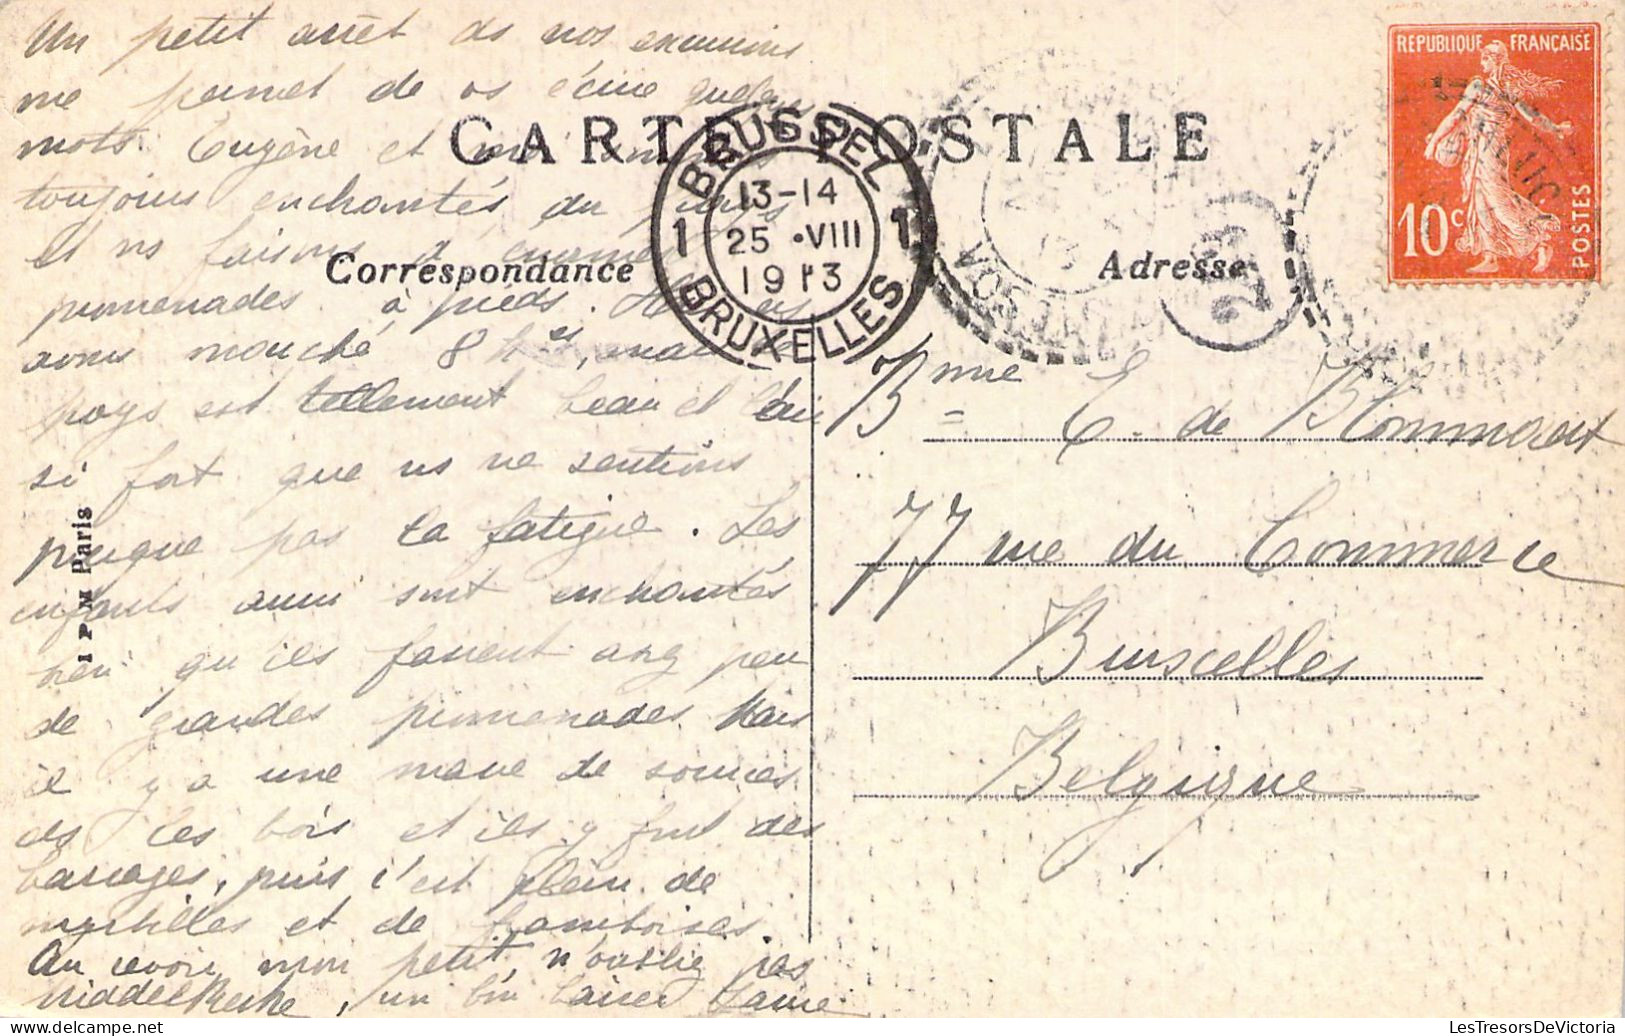 Un petit arrêt ds nos excursions
me permet de vs écrire quelques
mots. Eugène et moi sommes
toujours enchantés du pays
et ns faisons d'énormes
promenades à pieds. Hier ns
avons marché 8 hres, mais le
pays est tellement beau et l'air
si fort que ns ne sentions
presque pas la fatigue. Les
enfants aussi sont enchantés
bien qu'ils fassent assez peu
de grandes promenades. Mais
il y a une masse de sources
ds les bois et ils y font des
barrages, puis c'est plein de
myrtilles et de framboises.
Au revoir, mon petit, n'oublie pas
Middelkerke, un bon baiser
CARTE POSTALE
Correspondance
Adresse
I P M Paris
BRUSSEL
13-14
1 25 •VIII 1
1913
BRUXELLES
VOSGES
RÉPUBLIQUE FRANÇAISE
10c
POSTES
Bnne E. de Blommaert
77 rue du Commerce
Bruxelles
Belgique
LesTresorsDeVictoria